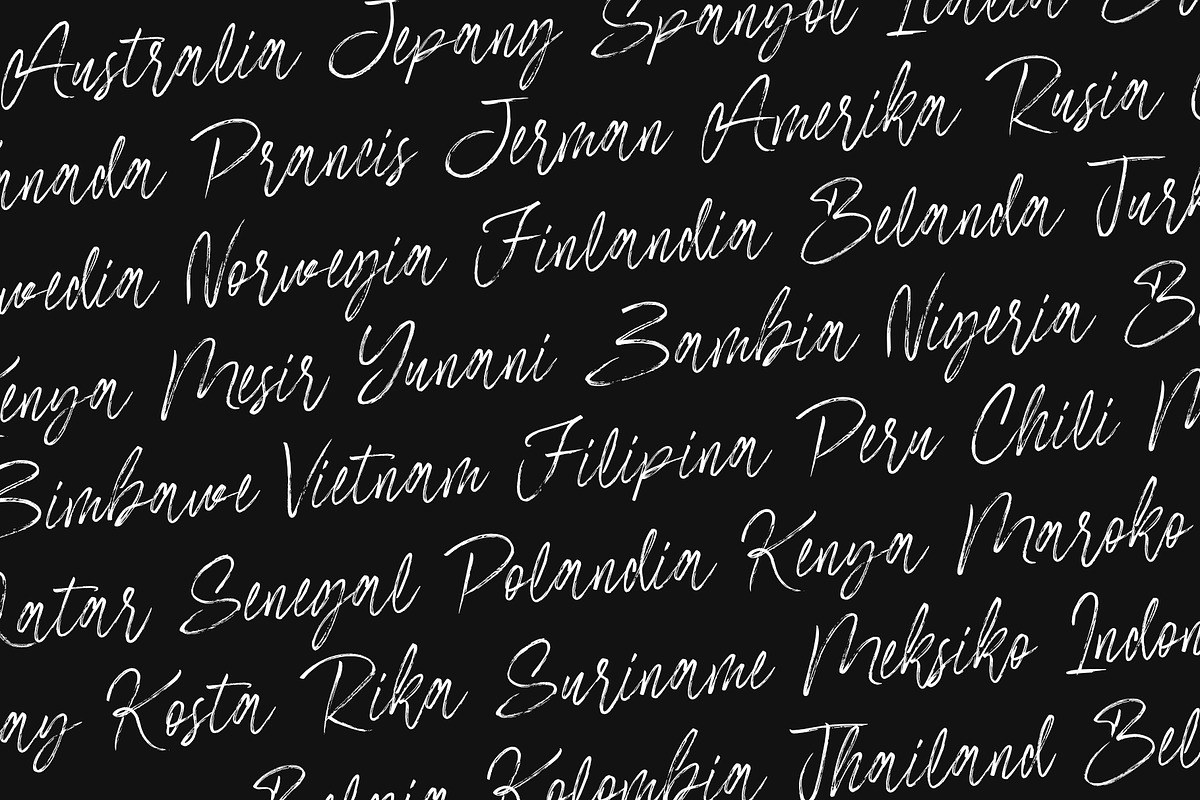 Australia Jepang Spanyol Italia
Prancis Jerman Amerika Rusia
Norwegia Finlandia Belanda Turk
enya Mesir Yunani Zambia Nigeria B
Zimbawe Vietnam Filipina Peru Chili M
Qatar Senegal Polandia Kenya Maroko
ay Kosta Rika Suriname Meksiko Indon
Belgia Kolombia Thailand Bel